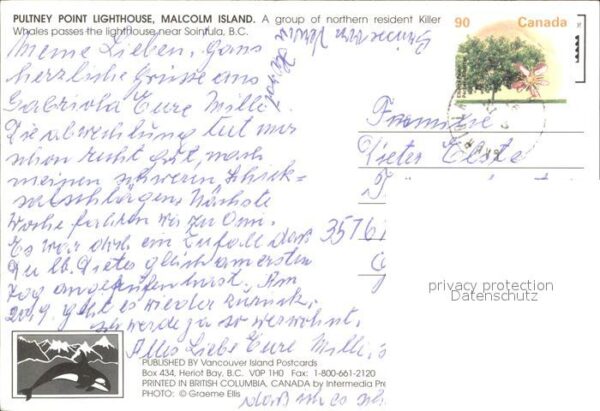 PULTNEY POINT LIGHTHOUSE, MALCOLM ISLAND. A group of northern resident Killer
Whales passes the lighthouse near Sointula, B.C.
90 Canada
Meine Lieben, Ganz
herzliche Grüsse aus
Gabriola Eure Milli.
Die abwechslung tut mir
schon recht gut, nach
meinen schweren Schick-
salschlägen. Nächste
Woche fahren wir zu Omi.
Es war doch ein Zufall daß
Du lb. Dieter gleich am ersten
Tag angerufen hast. Am
20.9. geht es wieder zurück,
ich werde ja so verwöhnt.
Alles Liebe Eure Milli,
daß ich so
Familie
Dieter
3576
privacy protection
Datenschutz
PUBLISHED BY Vancouver Island Postcards
Box 434, Heriot Bay, B.C. V0P 1H0 Fax: 1-800-661-2120
PRINTED IN BRITISH COLUMBIA, CANADA by Intermedia Pre
PHOTO: © Graeme Ellis